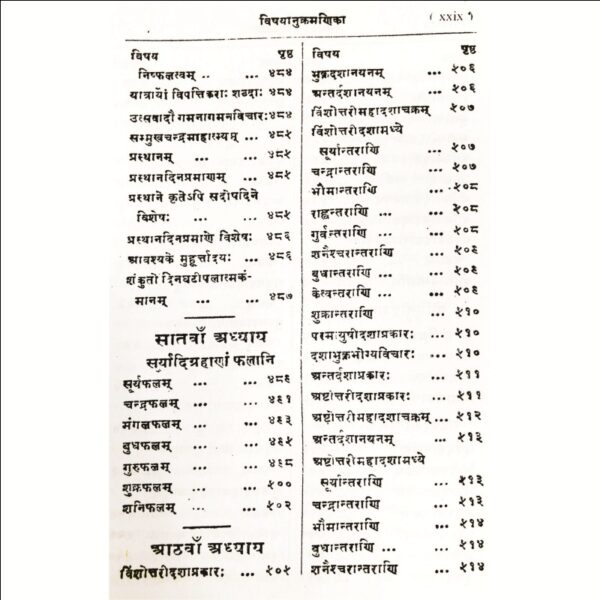 विषयानुक्रमणिका
( xxix )
विषय पृष्ठ
निष्फलत्वम् .. ... ४८४
यात्रायां विपत्तिकराः शब्दाः ४८४
उत्सवादौ गमनागमनविचारः ४८४
सम्मुखचन्द्रमाहात्म्यम् ... ४८५
प्रस्थानम् ... ... ४८५
प्रस्थानदिनप्रमाणम् ... ४८५
प्रस्थाने कृतेऽपि सदोषदिने
विशेषः ... ... ४८५
प्रस्थानदिनप्रमाणे विशेषः ४८६
आवश्यके मुहूर्त्तादयः ... ४८६
शंकुतो दिनघटीपलात्मकं-
मानम् ... ... ४८७
सातवाँ अध्याय
सूर्यादिग्रहाणां फलानि
सूर्यफलम् ... ... ४८६
चन्द्रफलम् ... ... ४६१
मंगलफलम् ... ... ४६३
बुधफलम् ... ... ४६५
गुरुफलम् ... ... ४६८
शुक्रफलम् ... ... ५००
शनिफलम् ... ... ५०२
आठवाँ अध्याय
विंशोत्तरीदशाप्रकारः ... ५०५
विषय पृष्ठ
भुक्रदशानयनम् ... ५०६
अन्तर्दशानयनम् ... ५०६
विंशोत्तरीमहादशाचक्रम् ५०७
विंशोत्तरीदशामध्ये
सूर्यान्तराणि ... ५०७
चन्द्रान्तराणि ... ५०७
भौमान्तराणि ... ५०८
राह्वन्तराणि ... ... ५०८
गुर्वन्तराणि ... ... ५०८
शनैश्चरान्तराणि ... ५०६
बुधान्तराणि ... ... ५०६
केत्वन्तराणि ... ... ५०६
शुक्रान्तराणि ... ५१०
परमायुषीदशाप्रकारः ... ५१०
दशाभुक्रभोग्यविचारः ... ५१०
अन्तर्दशाप्रकारः ... ५११
अष्टोत्तरीदशाप्रकारः ... ५११
अष्टोत्तरीमहादशाचक्रम् ... ५१२
अन्तर्दशानयनम् ... ५१३
अष्टोत्तरीमहादशामध्ये
सूर्यान्तराणि ... ५१३
चन्द्रान्तराणि ... ५१३
भौमान्तराणि ... ५१४
बुधान्तराणि ... ... ५१४
शनैश्चरान्तराणि ... ५१४